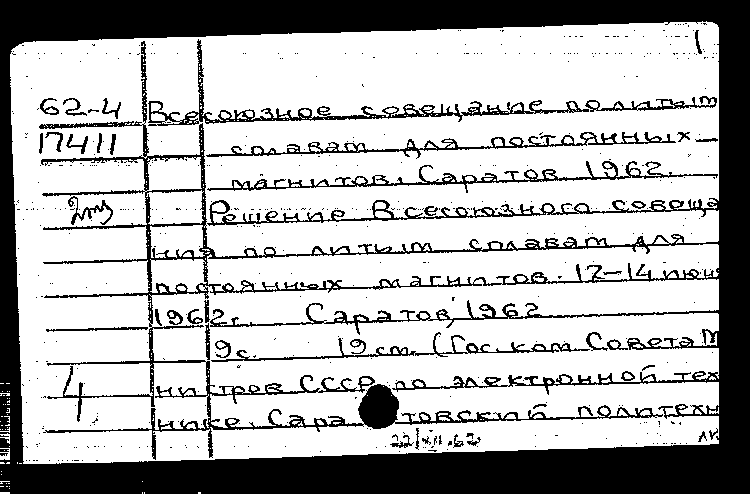 1
62-4 Всесоюзное совещание по литым
17411 сплавам для постоянных
магнитов. Саратов. 1962.
Решение Всесоюзного совеща
ния по литым сплавам для
постоянных магнитов. 12-14 июня
1962г. Саратов, 1962
9с. 19 см. (Гос. ком. Совета М
4 нистров СССР по электронной тех
нике. Саратовский политехн
22/XII.62